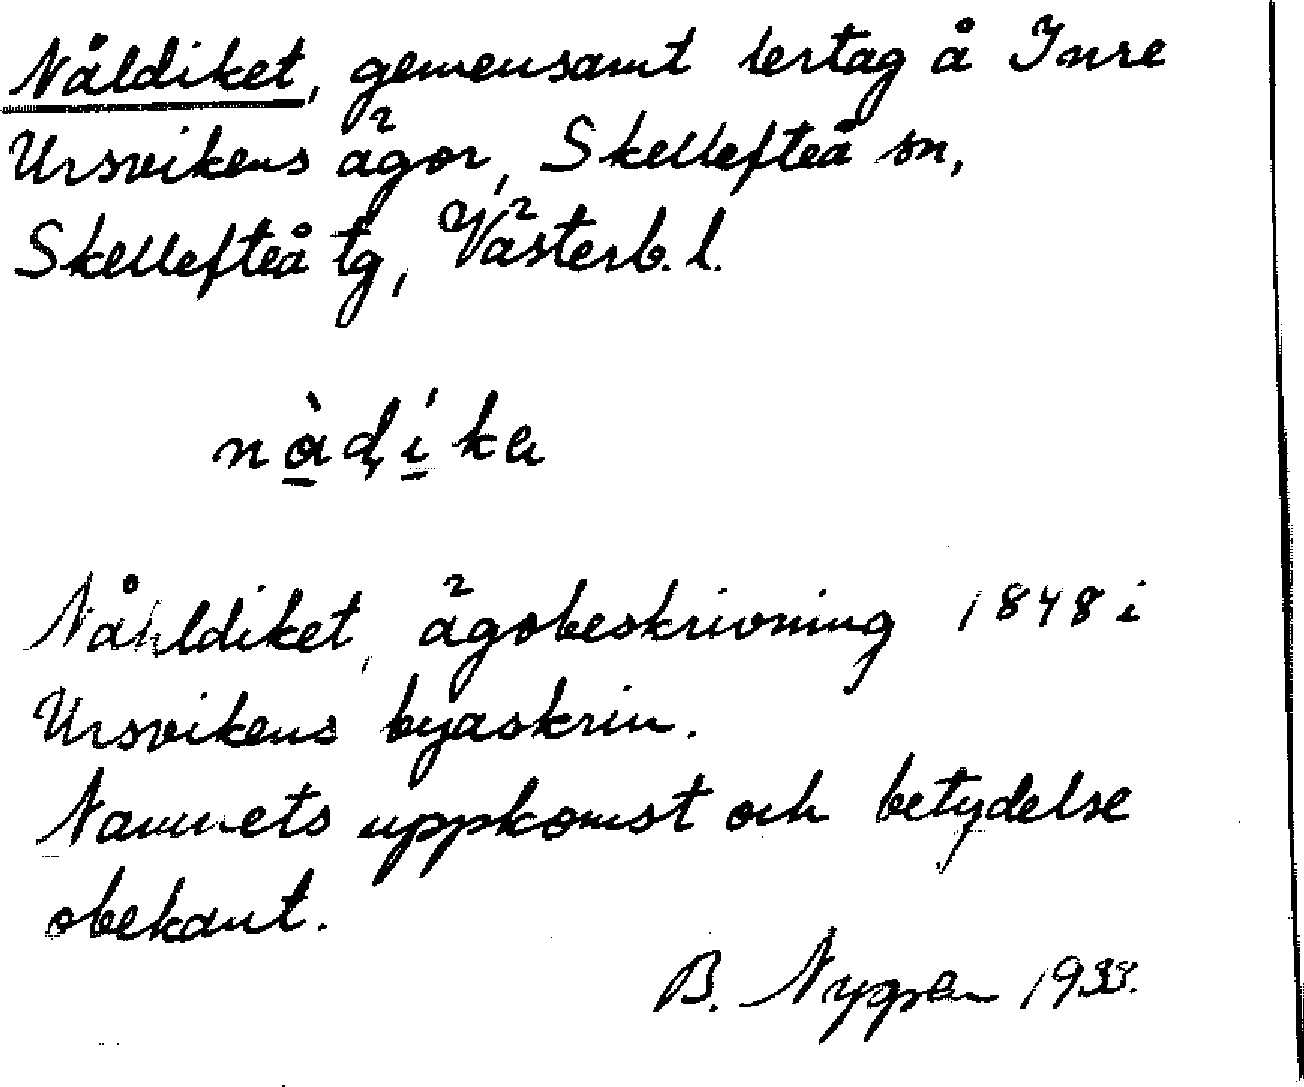 Nåldiket, gemensamt lertag å Inre
Ursvikens ägor, Skellefteå sn,
Skellefteå tg, Västerb. l.
nàḍíka
Nåhldiket, ägobeskrivning 1848 i
Ursvikens byaskrin.
Namnets uppkomst och betydelse
obekant.
B. Nygren 1933.